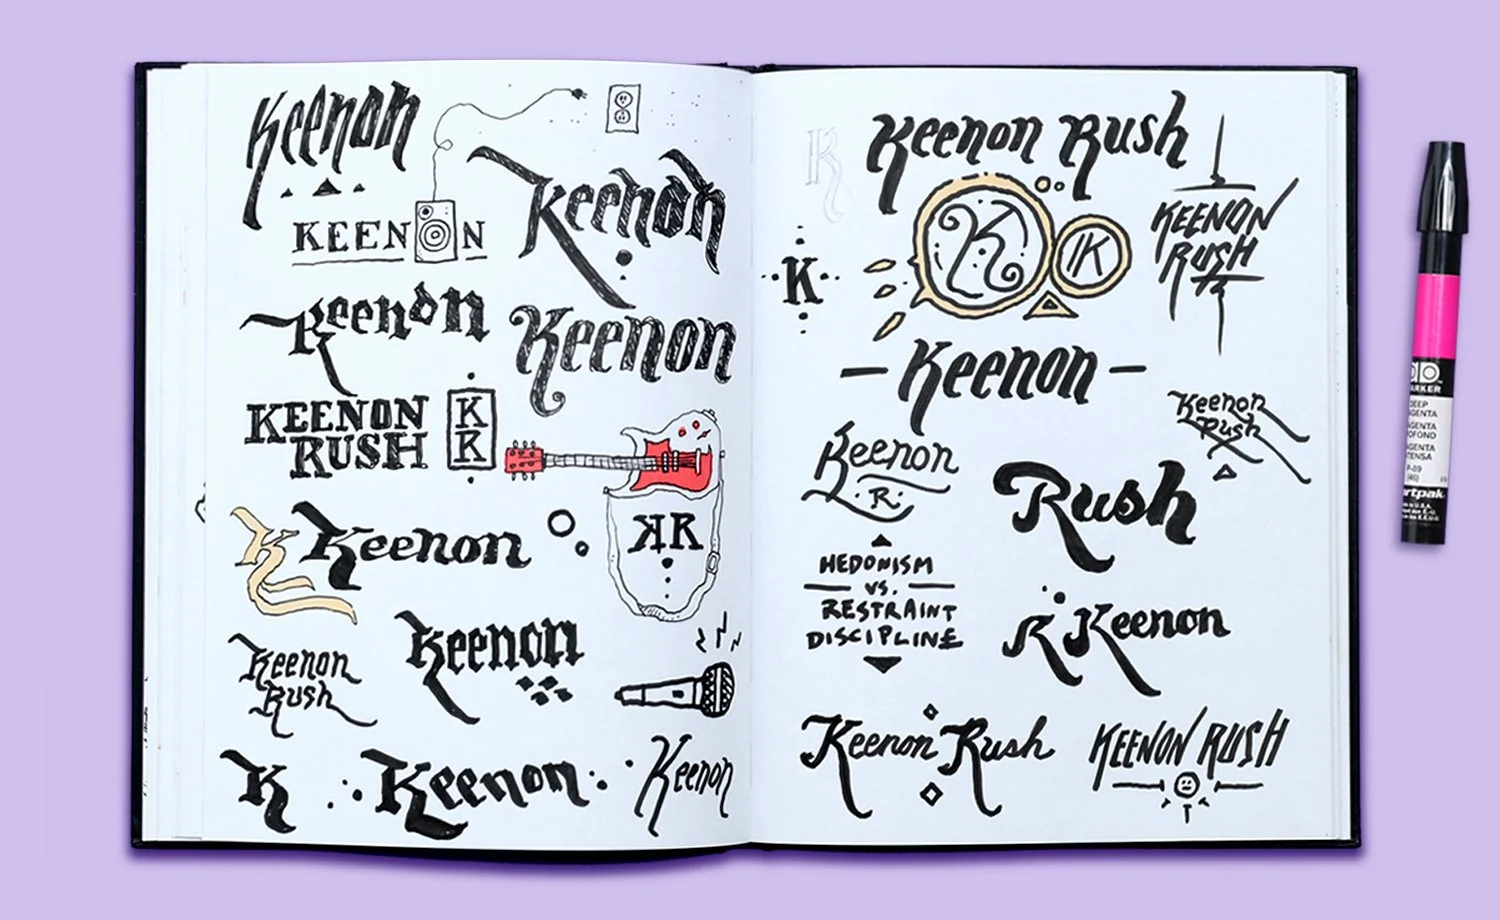 Keenon
KEENON
Keenon
Keenon
Keenon
KEENON
RUSH
K
R
KR
K Keenon
Keenon
Rush
Keenon
K Keenon
Keenon
R
Keenon Rush
K
K
K
KEENON
RUSH
Keenon
Keenon
Rush
Keenon
R
Rush
HEDONISM
VS.
RESTRAINT
DISCIPLINE
R Keenon
Keenon Rush
KEENON RUSH
MARKER
DEEP
P-89
artpak